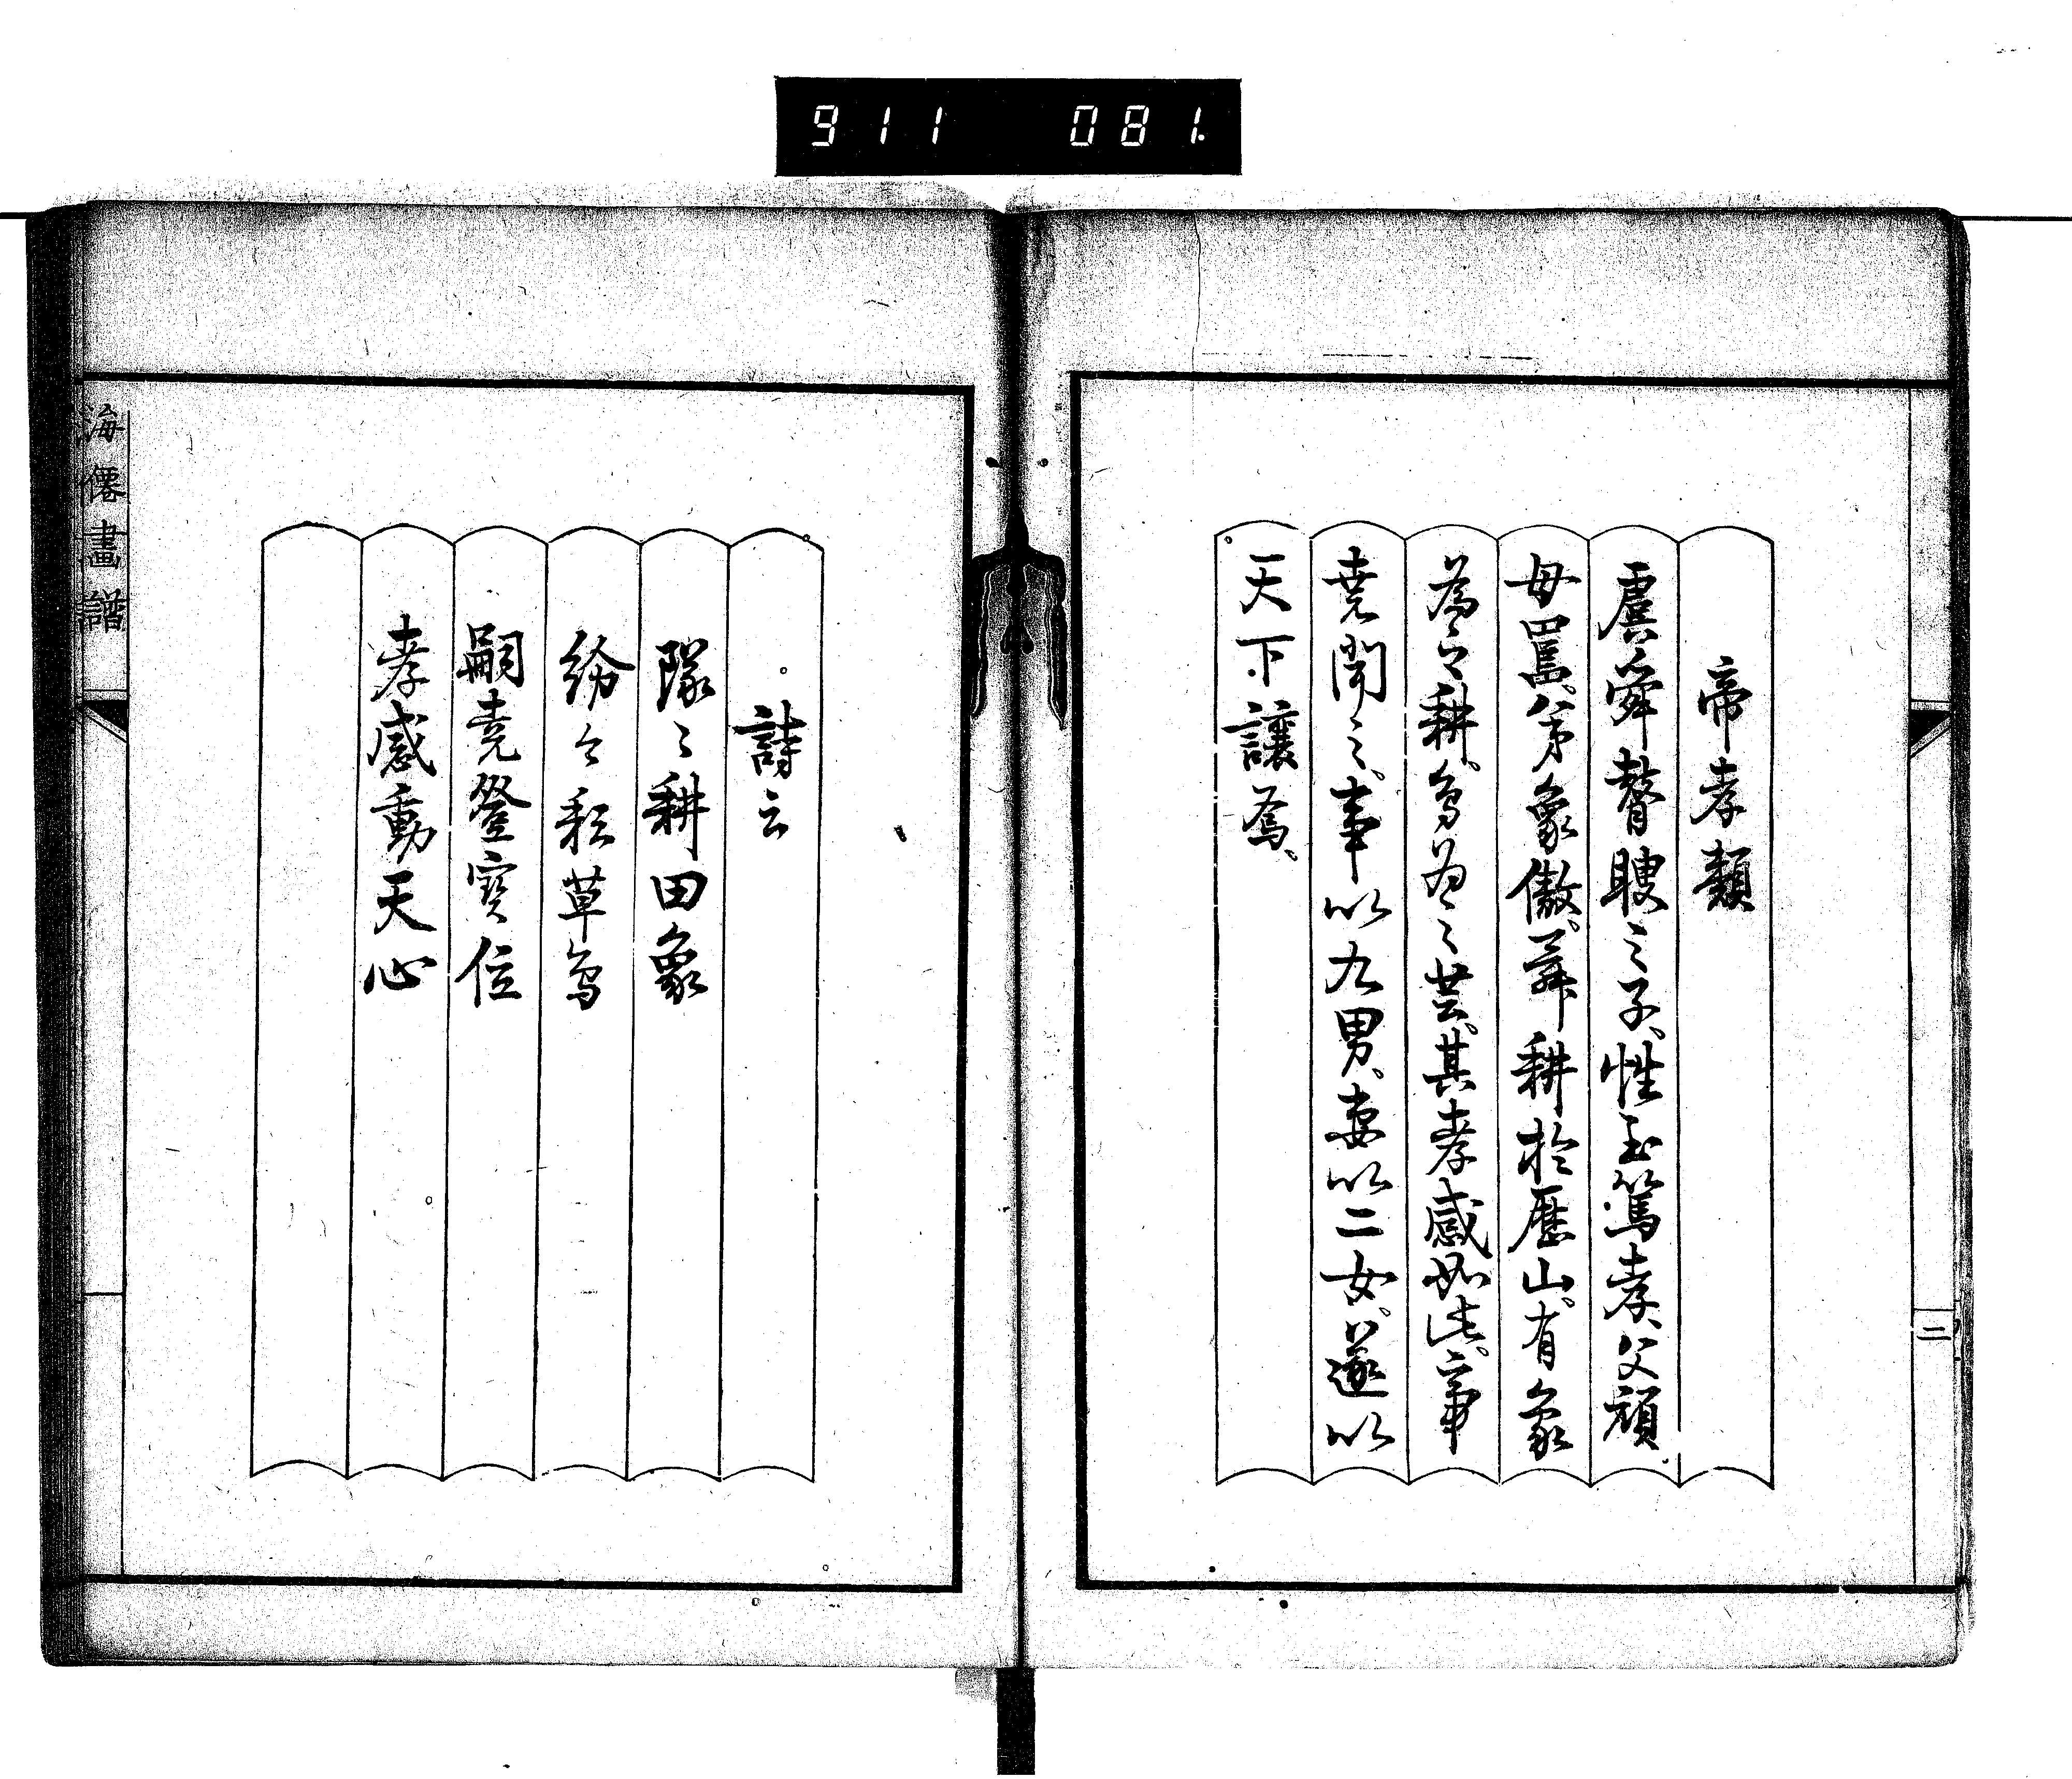 911 081.
帝孝類
虞舜瞽瞍之子、性至篤孝、父頑
母嚚。弟象傲。舜耕於歷山。有象
爲之耕。鳥爲之芸。其孝感如此。帝
堯聞之、事以九男、妻以二女。遂以
天下讓焉、
二
詩云
隊〻耕田象
紛〻耘草鳥
嗣堯登寶位
孝感動天心
海僊畫譜